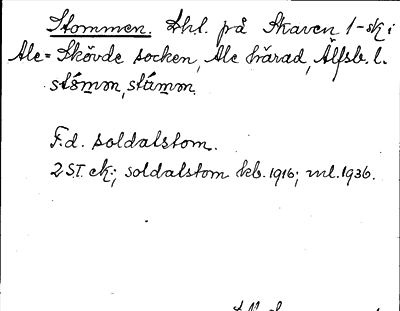 Stommen. Lhl. på Skaven 1-sk i
Ale-Skövde socken, Ale härad, Älfsb. l.
stómm, stámm.
F.d. soldatstom.
2 ST. ek; soldatstom kb. 1916; ml. 1936.